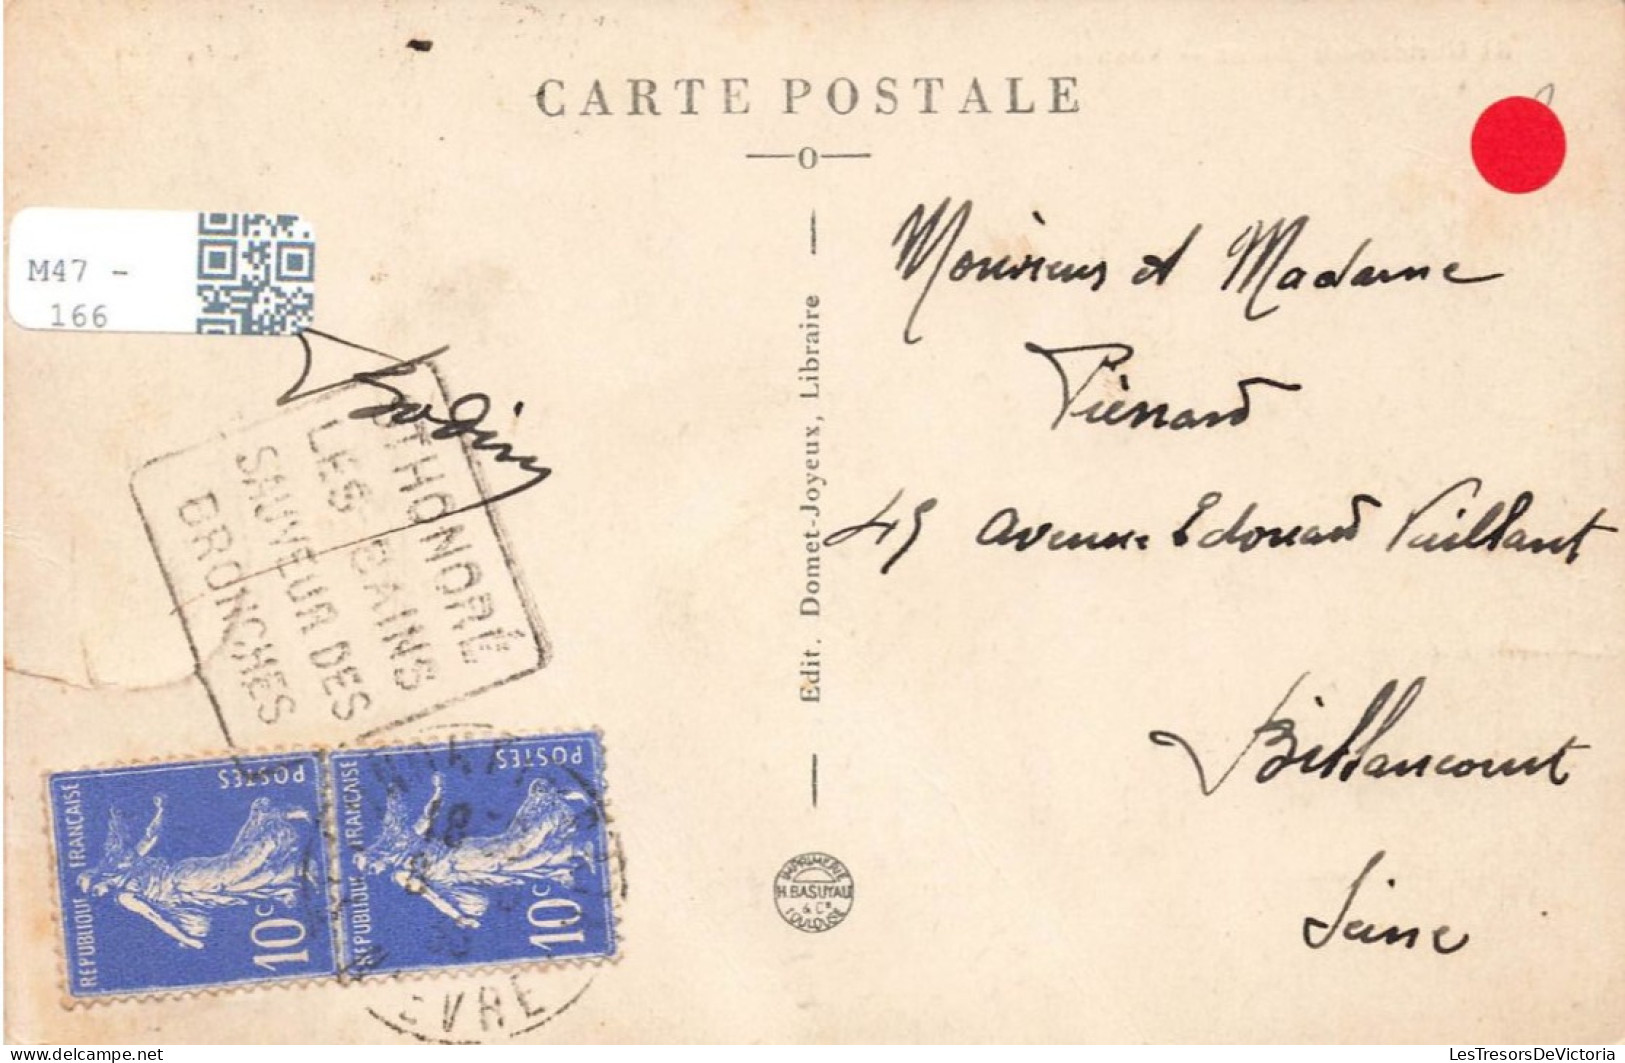 CARTE POSTALE
M47 -
166
Monsieur et Madame
Piénard
45 avenue Edouard Vaillant
Billancourt
Seine
Edit. Domet-Joyeux, Libraire
ST HONORÉ
LES BAINS
SAUVEUR DES
BRONCHES
POSTES
REPUBLIQUE FRANÇAISE
10c
POSTES
REPUBLIQUE FRANÇAISE
10c
18
IMPRIMERIE
H. BASUYAU
& Cie
TOULOUSE
delcampe.net
LesTresorsDeVictoria